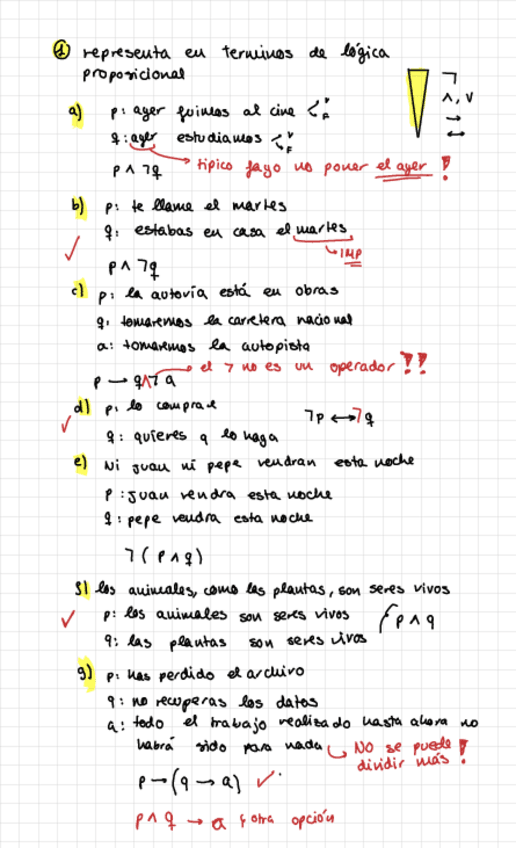 1 representa en terminos de lógica
proposicional
¬
∧, ∨
→
↔
a) p: ayer fuimos al cine < V F
q: ayer estudiamos < V F
p ∧ ¬q → tipico fayo no poner el ayer !
b) p: te llame el martes
q: estabas en casa el martes
↳ IMP
✓ p ∧ ¬q
c) p: la autovía está en obras
q: tomaremos la carretera nacional
a: tomaremos la autopista
p → q ∧ ¬ a → el ¬ no es un operador !!
✓ d) p: lo comprare ¬p ↔ ¬q
q: quieres q lo haga
e) Ni juan ni pepe vendran esta noche
p: juan vendra esta noche
q: pepe vendra esta noche
¬ ( p ∧ q )
f) los animales, como las plantas, son seres vivos
✓ p: los animales son seres vivos p ∧ q
q: las plantas son seres vivos
g) p: has perdido el archivo
q: no recuperas los datos
a: todo el trabajo realizado hasta ahora no
habrá sido para nada ↳ NO se puede
dividir más !
p → (q → a) ✓
p ∧ q → a otra opción